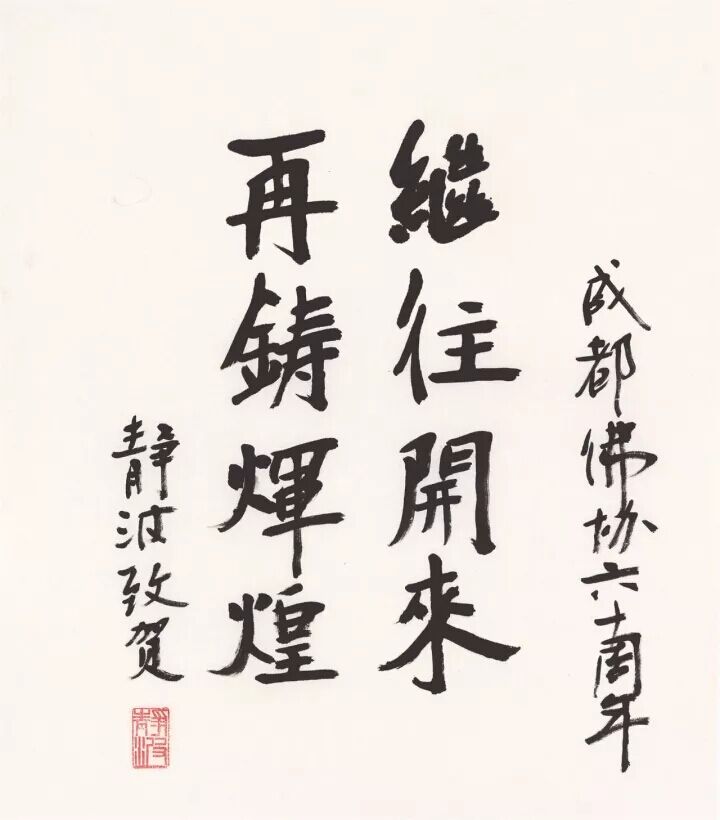 成都佛协六十周年
繼往開來
再鑄輝煌
静波致贺
静波